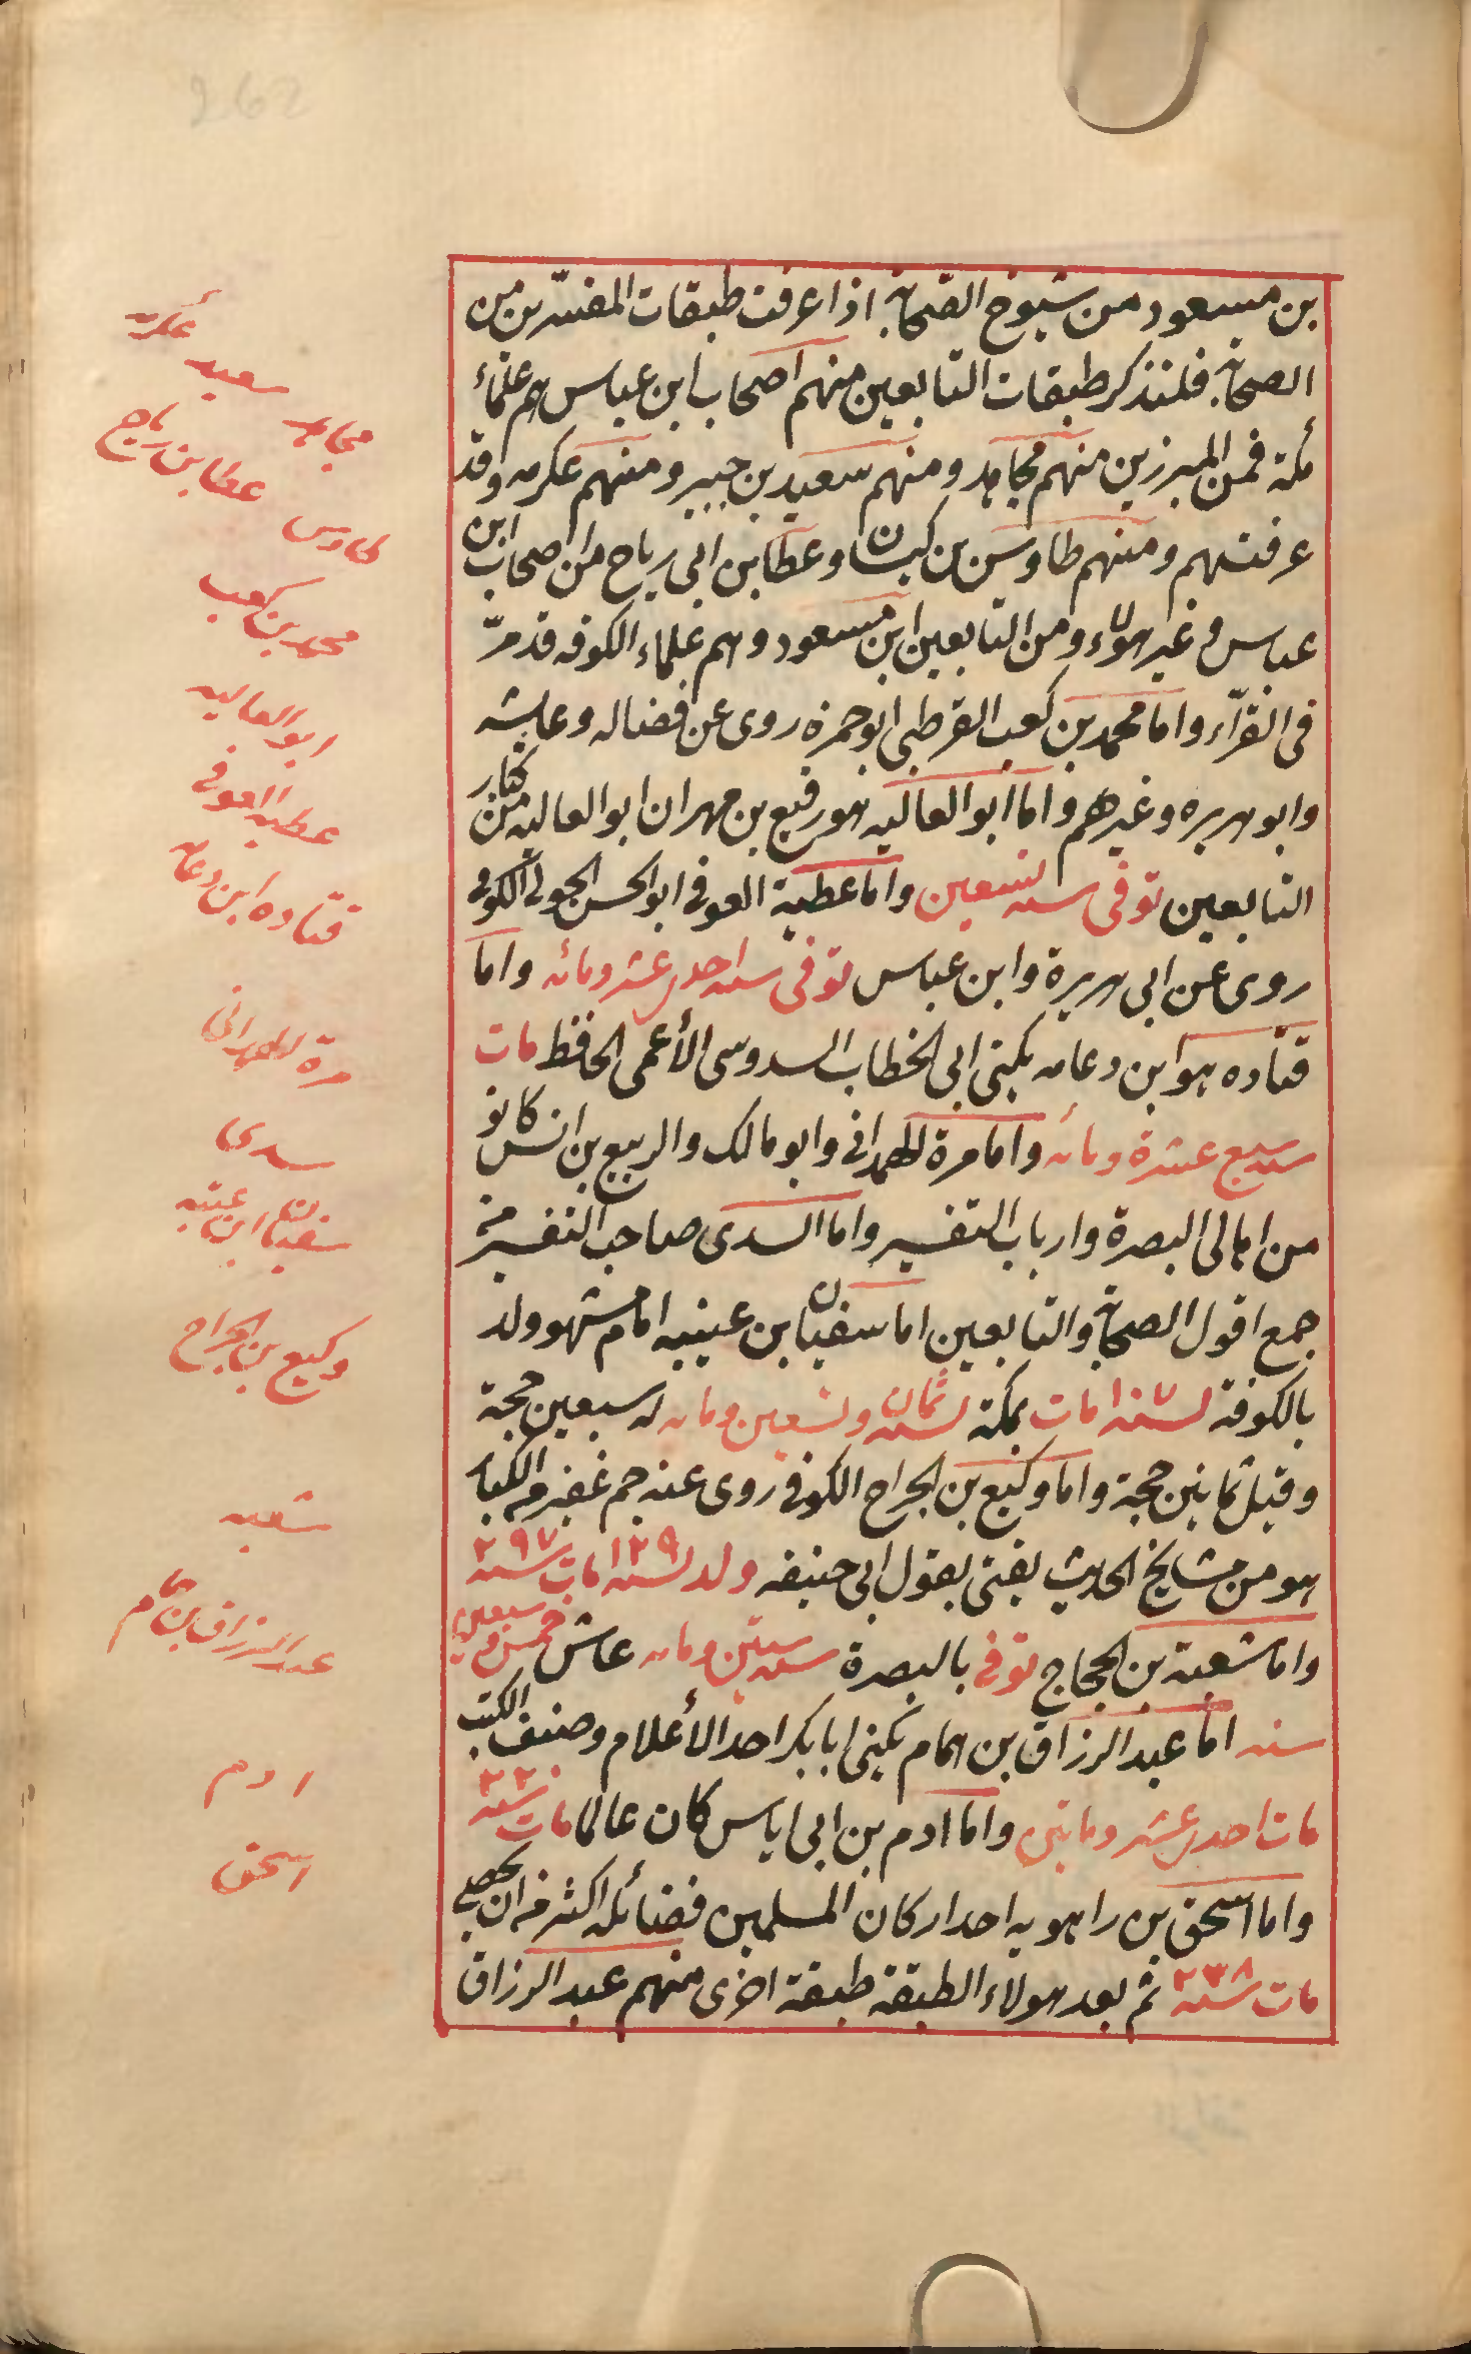 بن مسعود من شيوخ الصحابة اذا عرفت طبقات المفسرين من
الصحابة فلنذكر طبقات التابعين منهم اصحاب ابن عباس هم علماء
مكة فمن المبرزين منهم مجاهد ومنهم سعيد بن جبير ومنهم عكرمه وقد
عرفتهم ومنهم طاوس بن كيسان وعطا بن ابي رباح من اصحاب ابن
عباس وغير هؤلاء ومن التابعين ابن مسعود وهم علماء الكوفه قد مرّ
فى القرّاء واما محمد بن كعب القرطبى ابو حمزه روى عن فضاله وعايشه
وابو هريره وغيرهم واما ابو العاليه هو رفيع بن مهران ابو العاليه من كبار
التابعين توفى سنه تسعين واما عطية العوفى ابو الحسن الكوفى
روى عن ابى هريرة وابن عباس توفى سنه احدى عشر ومائه واما
قتاده هو ابن دعامه يكنى ابى الخطاب السدوسى الأعمى الحافظ مات
سنه سبع عشرة ومائه واما مرة الهمدانى وابو مالك والربيع بن انس كانو
من اهالى البصرة وارباب التفسير واما السدى صاحب التفسير
جمع اقول الصحابة والتابعين اما سفيان بن عيينه امام مشهو ولد
بالكوفة سنه ١٠٧ مات بمكة سنه ثمان وتسعين ومايه له سبعين حجة
وقيل ثمانين حجة واما وكيع بن الجراح الكوفى روى عنه جم غفير من الكبار
هو من مشايخ الحديث يفتى بقول ابى حنيفه ولد سنه ١٢٩ مات سنه ٢٩٧
واما شعبة بن الحجاج توفى بالبصرة سنه ستين ومايه عاش خمس وسبعين
سنه اما عبد الرزاق بن همام يكنى ابا بكر احد الأعلام وصنف الكتب
مات احدى عشر ومايتين واما ادم بن ابى اياس كان عالما مات سنه ٢٢٠
واما اسحق بن راهويه احد اركان المسلمين فضائله اكثر من ان يحصى
مات سنه ٢٣٨ ثم بعد هولاء الطبقة طبقة اخرى منهم عبد الرزاق
عكرمه
سعيد
مجاهد
عطا بن رباح
طاوس
محمد بن كعب
ابو العاليه
عطيه العوفى
قتاده ابن دعامه
مرة الهمدانى
سدى
سفيان ابن عتيبه
وكيع بن الجراح
شعبه
عبد الرزاق بن همام
ادم
اسحق